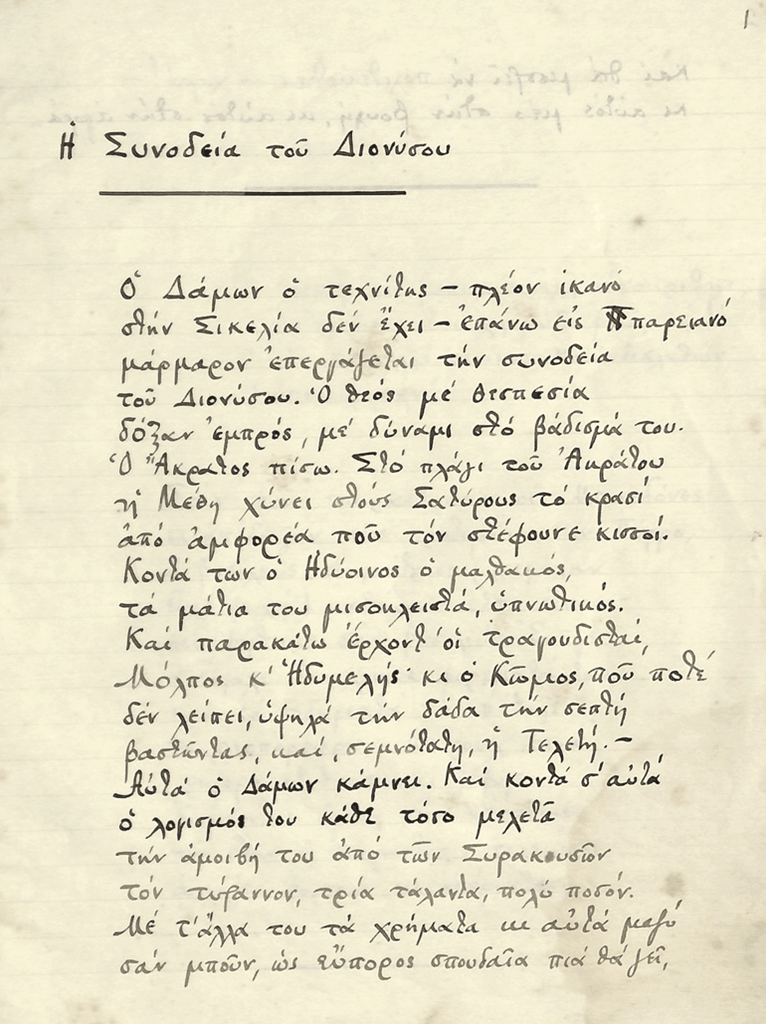 1
Ἡ Συνοδεία τοῦ Διονύσου
Ὁ Δάμων ὁ τεχνίτης – πλέον ἱκανό
στήν Σικελία δέν ἔχει – ἐπάνω εἰς παρειανό
μάρμαρον ἐπεργάζεται τήν συνοδεία
τοῦ Διονύσου. Ὁ θεός μέ θεσπεσία
δόξαν ἐμπρός, μέ δύναμι στό βάδισμά του.
Ὁ Ἄκρατος πίσω. Στό πλάγι τοῦ Ἀκράτου
ἡ Μέθη χύνει στούς Σατύρους τό κρασί
ἀπό ἀμφορέα πού τόν στέφουνε κισσοί.
Κοντά των ὁ Ἡδύοινος ὁ μαλθακός,
τά μάτια του μισοκλειστά, ὑπνωτικός.
Καί παρακάτω ἔρχοντ' οἱ τραγουδισταί,
Μόλπος κ' Ἡδυμελής· κι ὁ Κῶμος, πού ποτέ
δέν λείπει, ὑψηλά τήν δάδα τήν σεπτή
βαστῶντας, καί, σεμνότατη, ἡ Τελετή. –
Αὐτά ὁ Δάμων κάμνει. Καί κοντά σ' αὐτά
ὁ λογισμός του κάθε τόσο μελετᾶ
τήν ἀμοιβή του ἀπό τῶν Συρακουσῶν
τόν τύραννον, τρία τάλαντα, πολύ ποσόν.
Μέ τ' ἄλλα του τά χρήματα κι αὐτά μαζύ
σάν μποῦν, ὡς εὔπορος σπουδαῖα πιά θά ζεῖ,